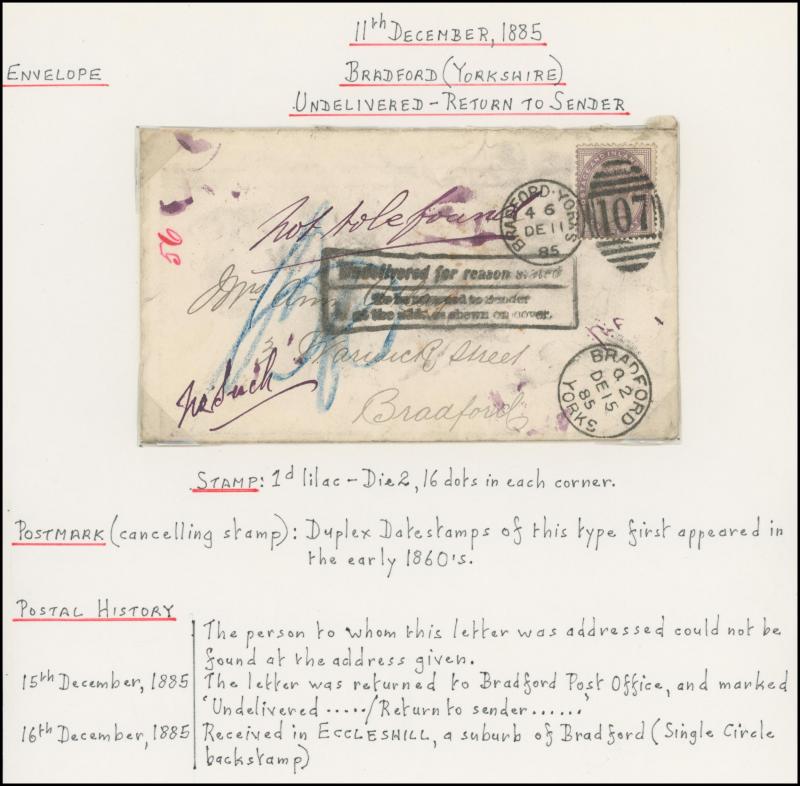 11th DECEMBER, 1885
ENVELOPE
BRADFORD (YORKSHIRE)
UNDELIVERED – RETURN TO SENDER
BRADFORD·YORKS
4 6
DE 11
85
107
56
not to be found
Undelivered for reason stated
To be returned to Sender
at the address shewn on cover.
Mrs Ann
3 Warwick Street
Bradford
No Such
BRADFORD
Q 2
DE 15
85
YORKS
STAMP: 1d lilac – Die 2, 16 dots in each corner.
POSTMARK (cancelling stamp): Duplex Datestamps of this type first appeared in
the early 1860's.
POSTAL HISTORY
The person to whom this letter was addressed could not be
found at the address given.
15th December, 1885 The letter was returned to Bradford Post Office, and marked
'Undelivered ...../Return to sender ......'
16th December, 1885 Received in ECCLESHILL, a suburb of Bradford (Single Circle
backstamp)